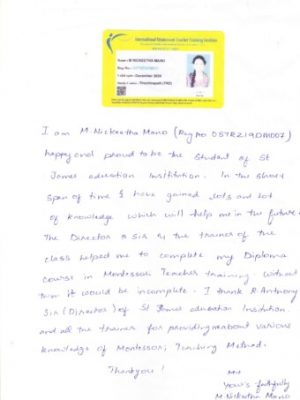 International Montessori Teacher Training Institute
M NICKEETHA MANO
December 2020
I am M. Nickeetha Mano (Reg no DSTR219DM007)
happy and proud to be the Student of St
James education Institution. In the short
span of time I have gained lots and lot
of knowledge which will help me in the future.
The Director & Sir & the trainer of the
class helped me to complete my Diploma
course in Montessori Teacher training. Without
them it would be incomplete. I thank R Anthony
Sir (Director) of St James education Institution
and all the trainer for providing me about various
knowledge of Montessori Teaching Method.
Thankyou!
Your's faithfully
M Nickeetha Mano